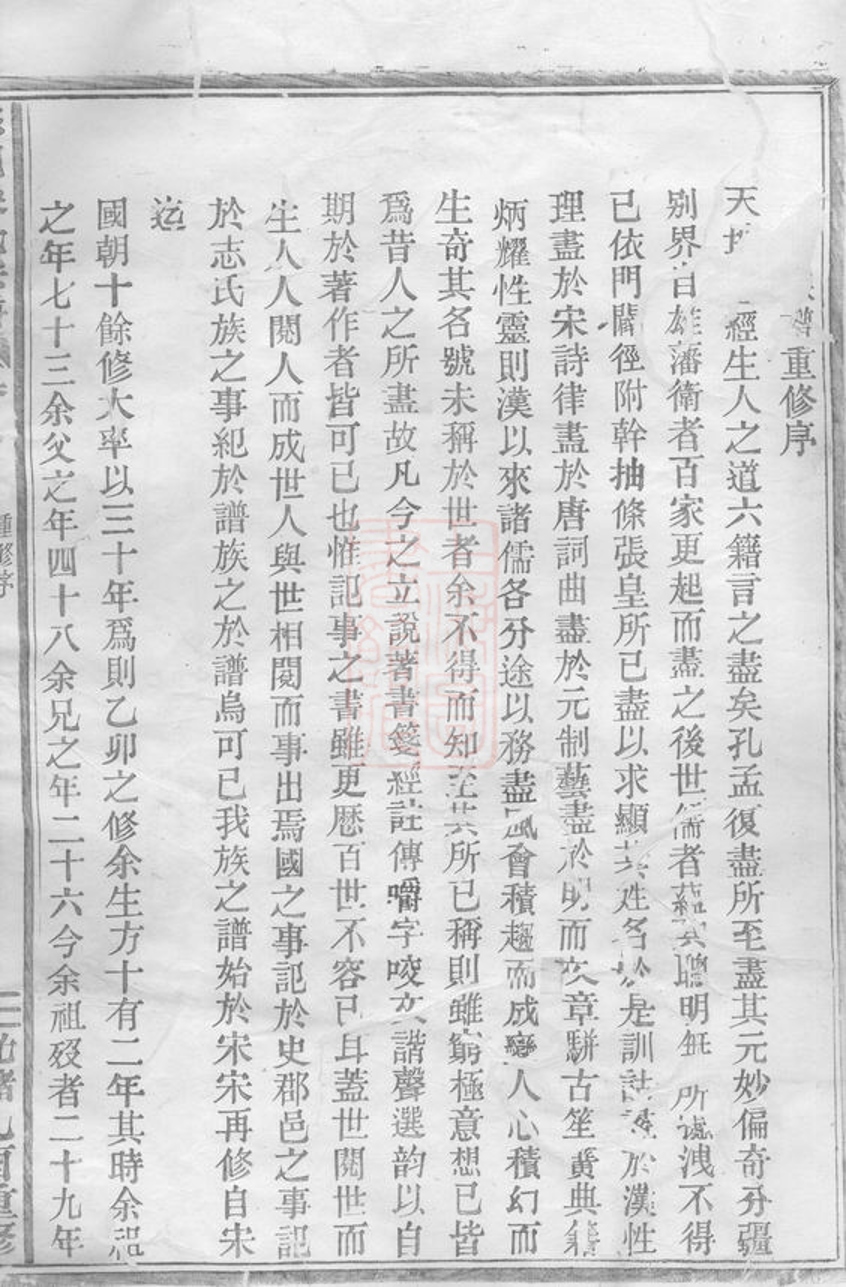 譜重修序
天 經生人之道六籍言之盡矣孔孟復盡所至盡其元妙偏奇分疆
別界自雄藩衛者百家更起而盡之後世儒者 其聰明無所 洩不得
已依門闢徑附幹抽條張皇所已盡以求顯其姓名於是訓詁 於漢性
理盡於宋詩律盡於唐詞曲盡於元制藝盡於明而文章駢古笙簧典
炳耀性靈則漢以來諸儒各分途以務盡風會積趨而成變人心積幻而
生奇其名號未稱於世者余不得而知至其所已稱則雖窮極意想已皆
爲昔人之所盡故凡今之立說著書箋經註傳嚼字咬文諧聲選韵以自
期於著作者皆可已也惟記事之書雖更歷百世不容已耳蓋世閱世而
生人人閱人而成世人與世相閱而事出焉國之事記於史郡邑之事記
於志氏族之事紀於譜族之於譜烏可已我族之譜始於宋宋再修自宋
迄
國朝十餘修大率以三十年爲則乙卯之修余生方十有二年其時余祖
之年七十三余父之年四十八余兄之年二十六今余祖歿者二十九年
重修序